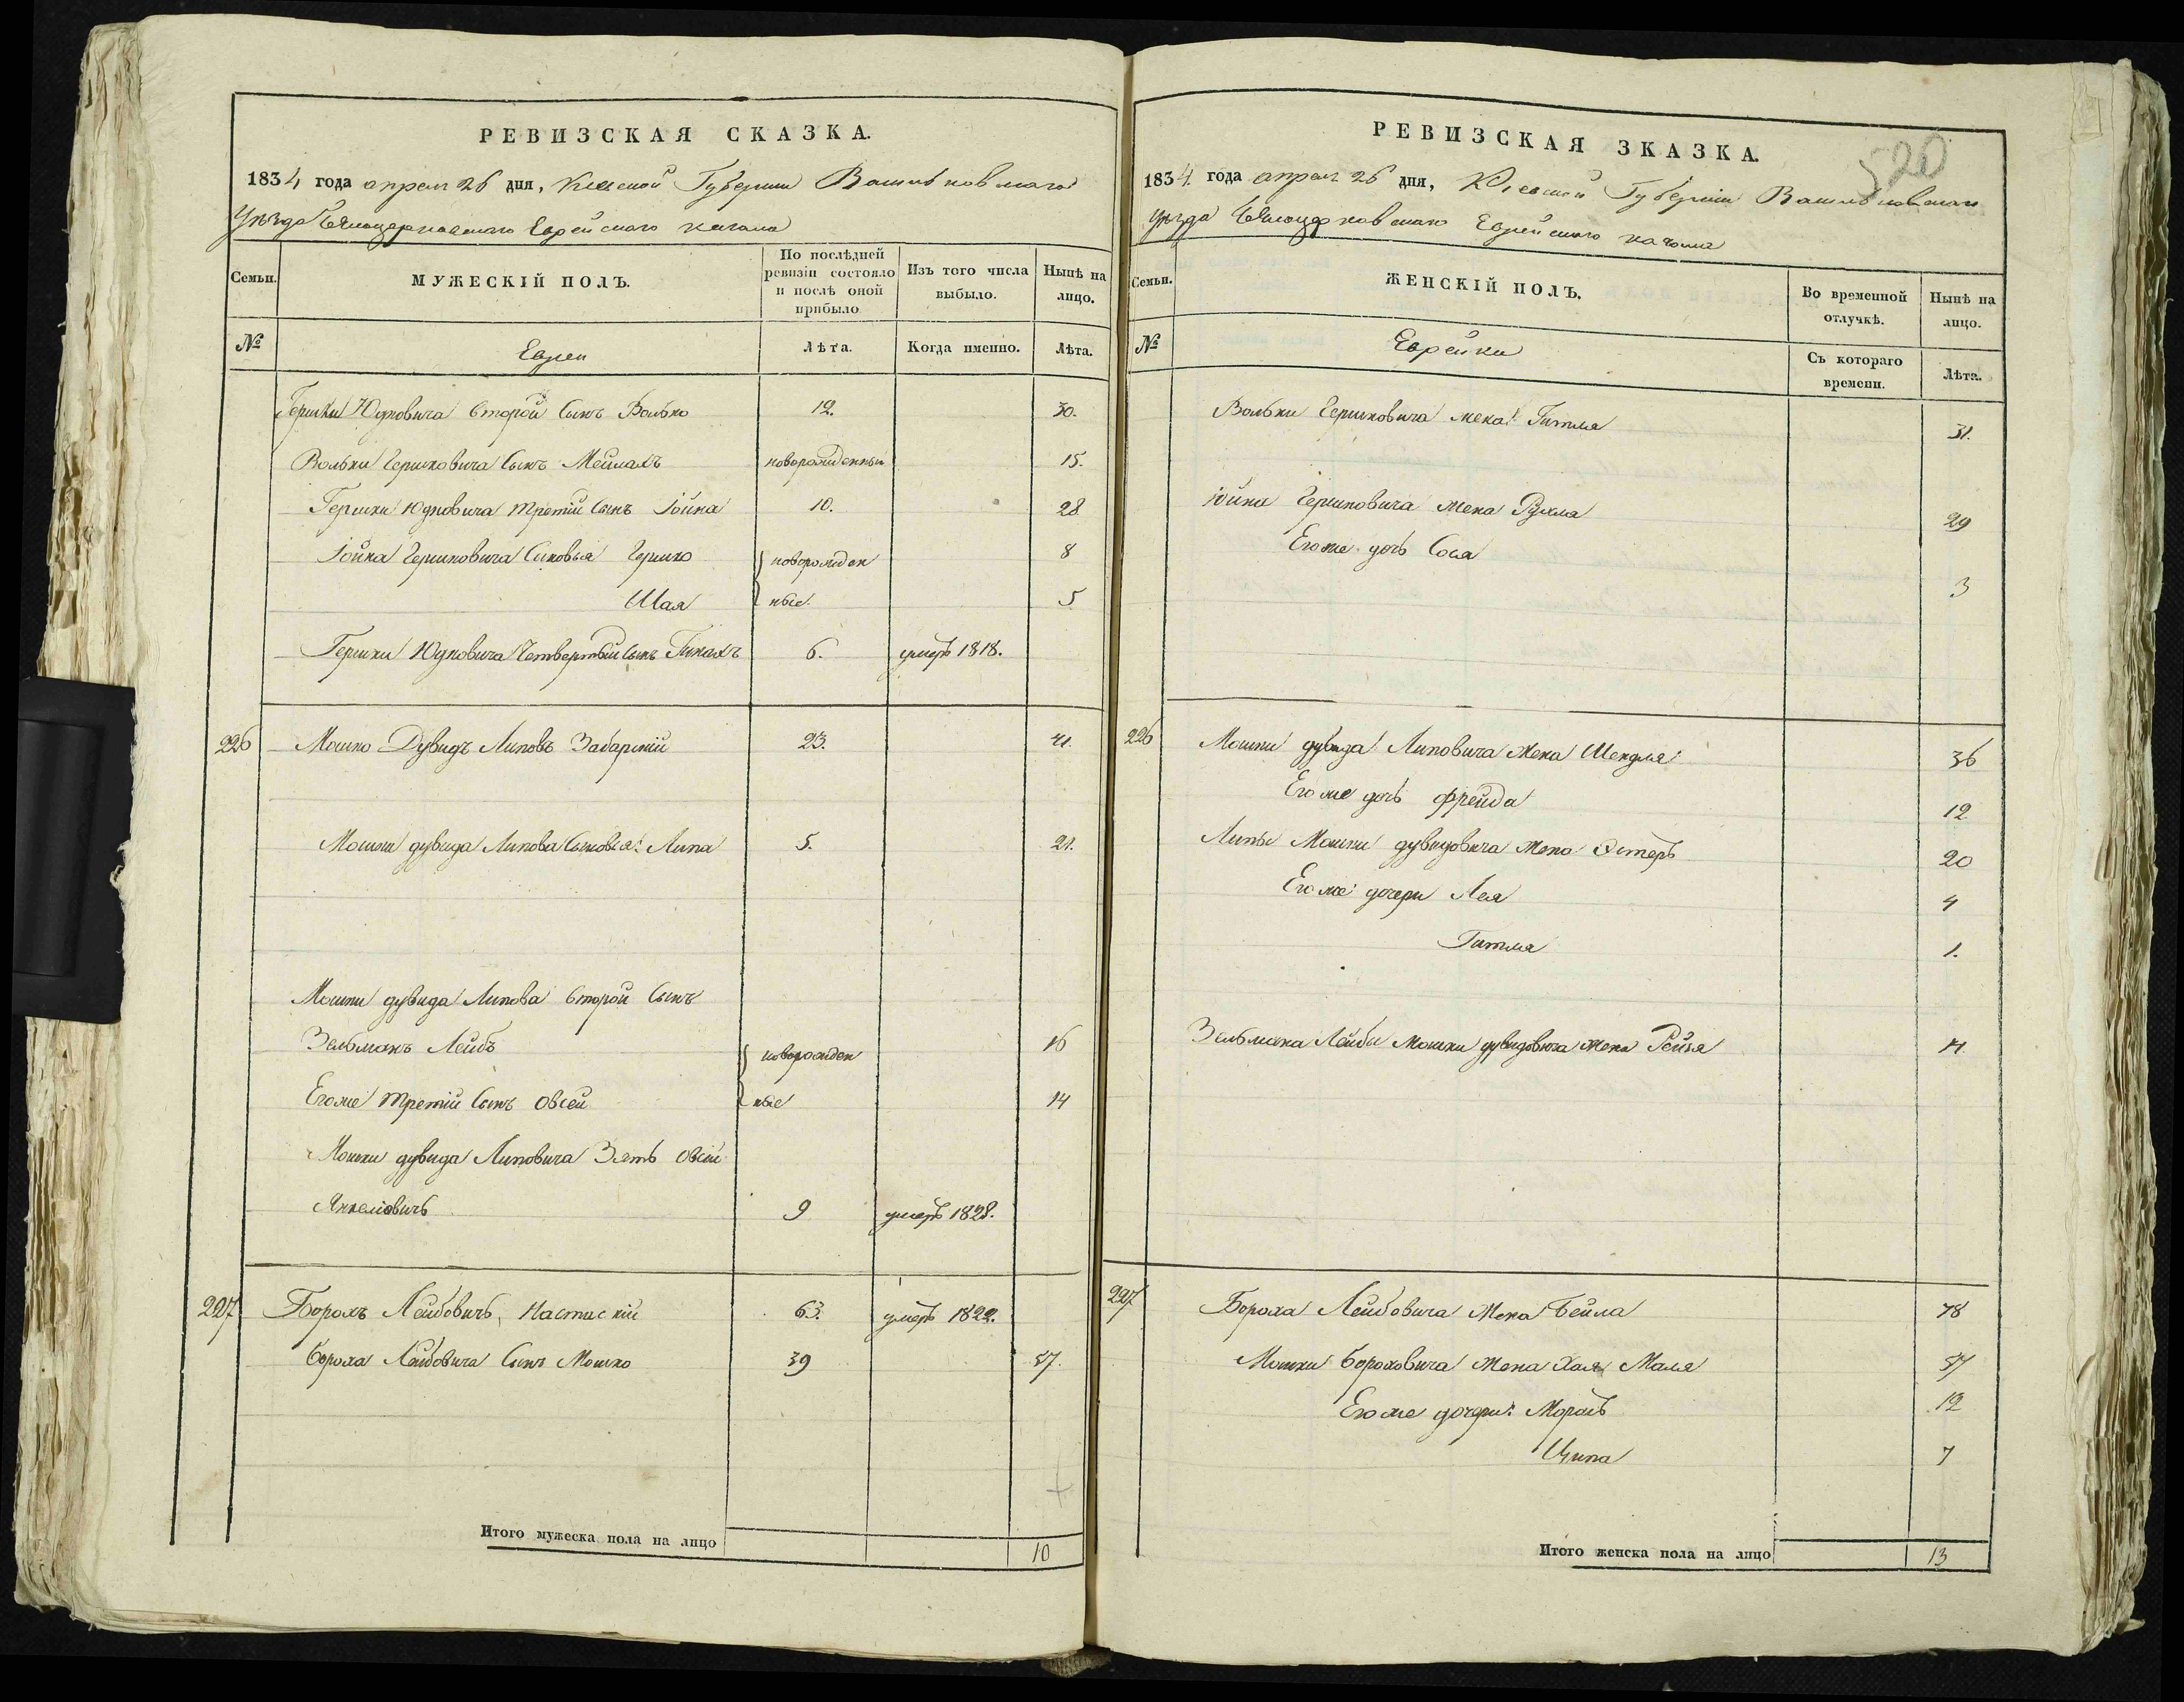 РЕВИЗСКАЯ СКАЗКА.
1834 года апреля 26 дня, Киевской Губернии Васильковскаго
Уѣзда Бѣлоцерковскаго Еврейскаго кагала
Семьи.
МУЖЕСКІЙ ПОЛЪ.
По послѣдней ревизіи состояло и послѣ оной прибыло
Изъ того числа выбыло.
Нынѣ на лицо.
№
Евреи
Лѣта.
Когда именно.
Лѣта.
Гершки Юдковича второй сынъ Волько 12. 30.
Вольки Гершковича сынъ Мейлахъ новорожденный 15.
Гершки Юдковича третій сынъ Іойна 10. 28
Іойна Гершковича сыновья Гершко новорожден 8
Шая ные. 5
Гершки Юдковича Четвертый сынъ 6. умеръ 1818.
226 Мошко Дувидъ Липовъ Забарскій 23. 41.
Мошки дувида Липова сыновья: Липа 5. 21.
Мошки дувида Липова второй сынъ
Зельманъ Лейбъ новорожден 16
Его же третій сынъ Овсей ные 14
Мошки дувида Липовича Зять Овсій
Янкеліовичъ 9 умеръ 1828.
227 Борохъ Лейбовичъ Настискій 63. умеръ 1822.
Бороха Лейбовича сынъ Мошко 39 57.
Итого мужеска пола на лицо 10
РЕВИЗСКАЯ ЗКАЗКА.
520
1834 года апреля 26 дня, Кіевской Губерніи Васильковскаго
уѣзда Бѣлоцерковскаго Еврейскаго кагала
Семьи.
ЖЕНСКІЙ ПОЛЪ.
Во временной отлучкѣ.
Нынѣ на лицо.
№
Еврейки
Съ котораго времени.
Лѣта.
Вольки Гершковича жена: Гитля 31.
Іойны Гершковича жена Рухля 29
Его же дочь Сося 3
226 Мошки дувида Липовича жена Шендля 36
Его же дочь фрейда 12
Липы Мошки дувидовича жена Эстеръ 20
Его же дочери Лея 4
Гитля 1.
Зельмана Лейбы Мошки дувидовича жена Рейзя
227 Бороха Лейбовича жена Бейла 78
Мошки Бороховича жена Хая Маля 57
Его же дочери: 12
Ципа 7
Итого женска пола на лицо 13